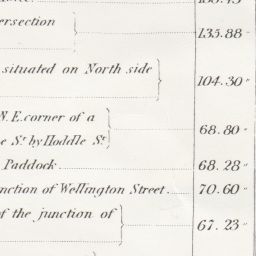 ersection
135.88 "
situated on North side
104.30 "
N.E. corner of a
e St. by Hoddle St.
68.80 "
Paddock
68.28 "
nction of Wellington Street
70.60 "
of the junction of
67.23 "